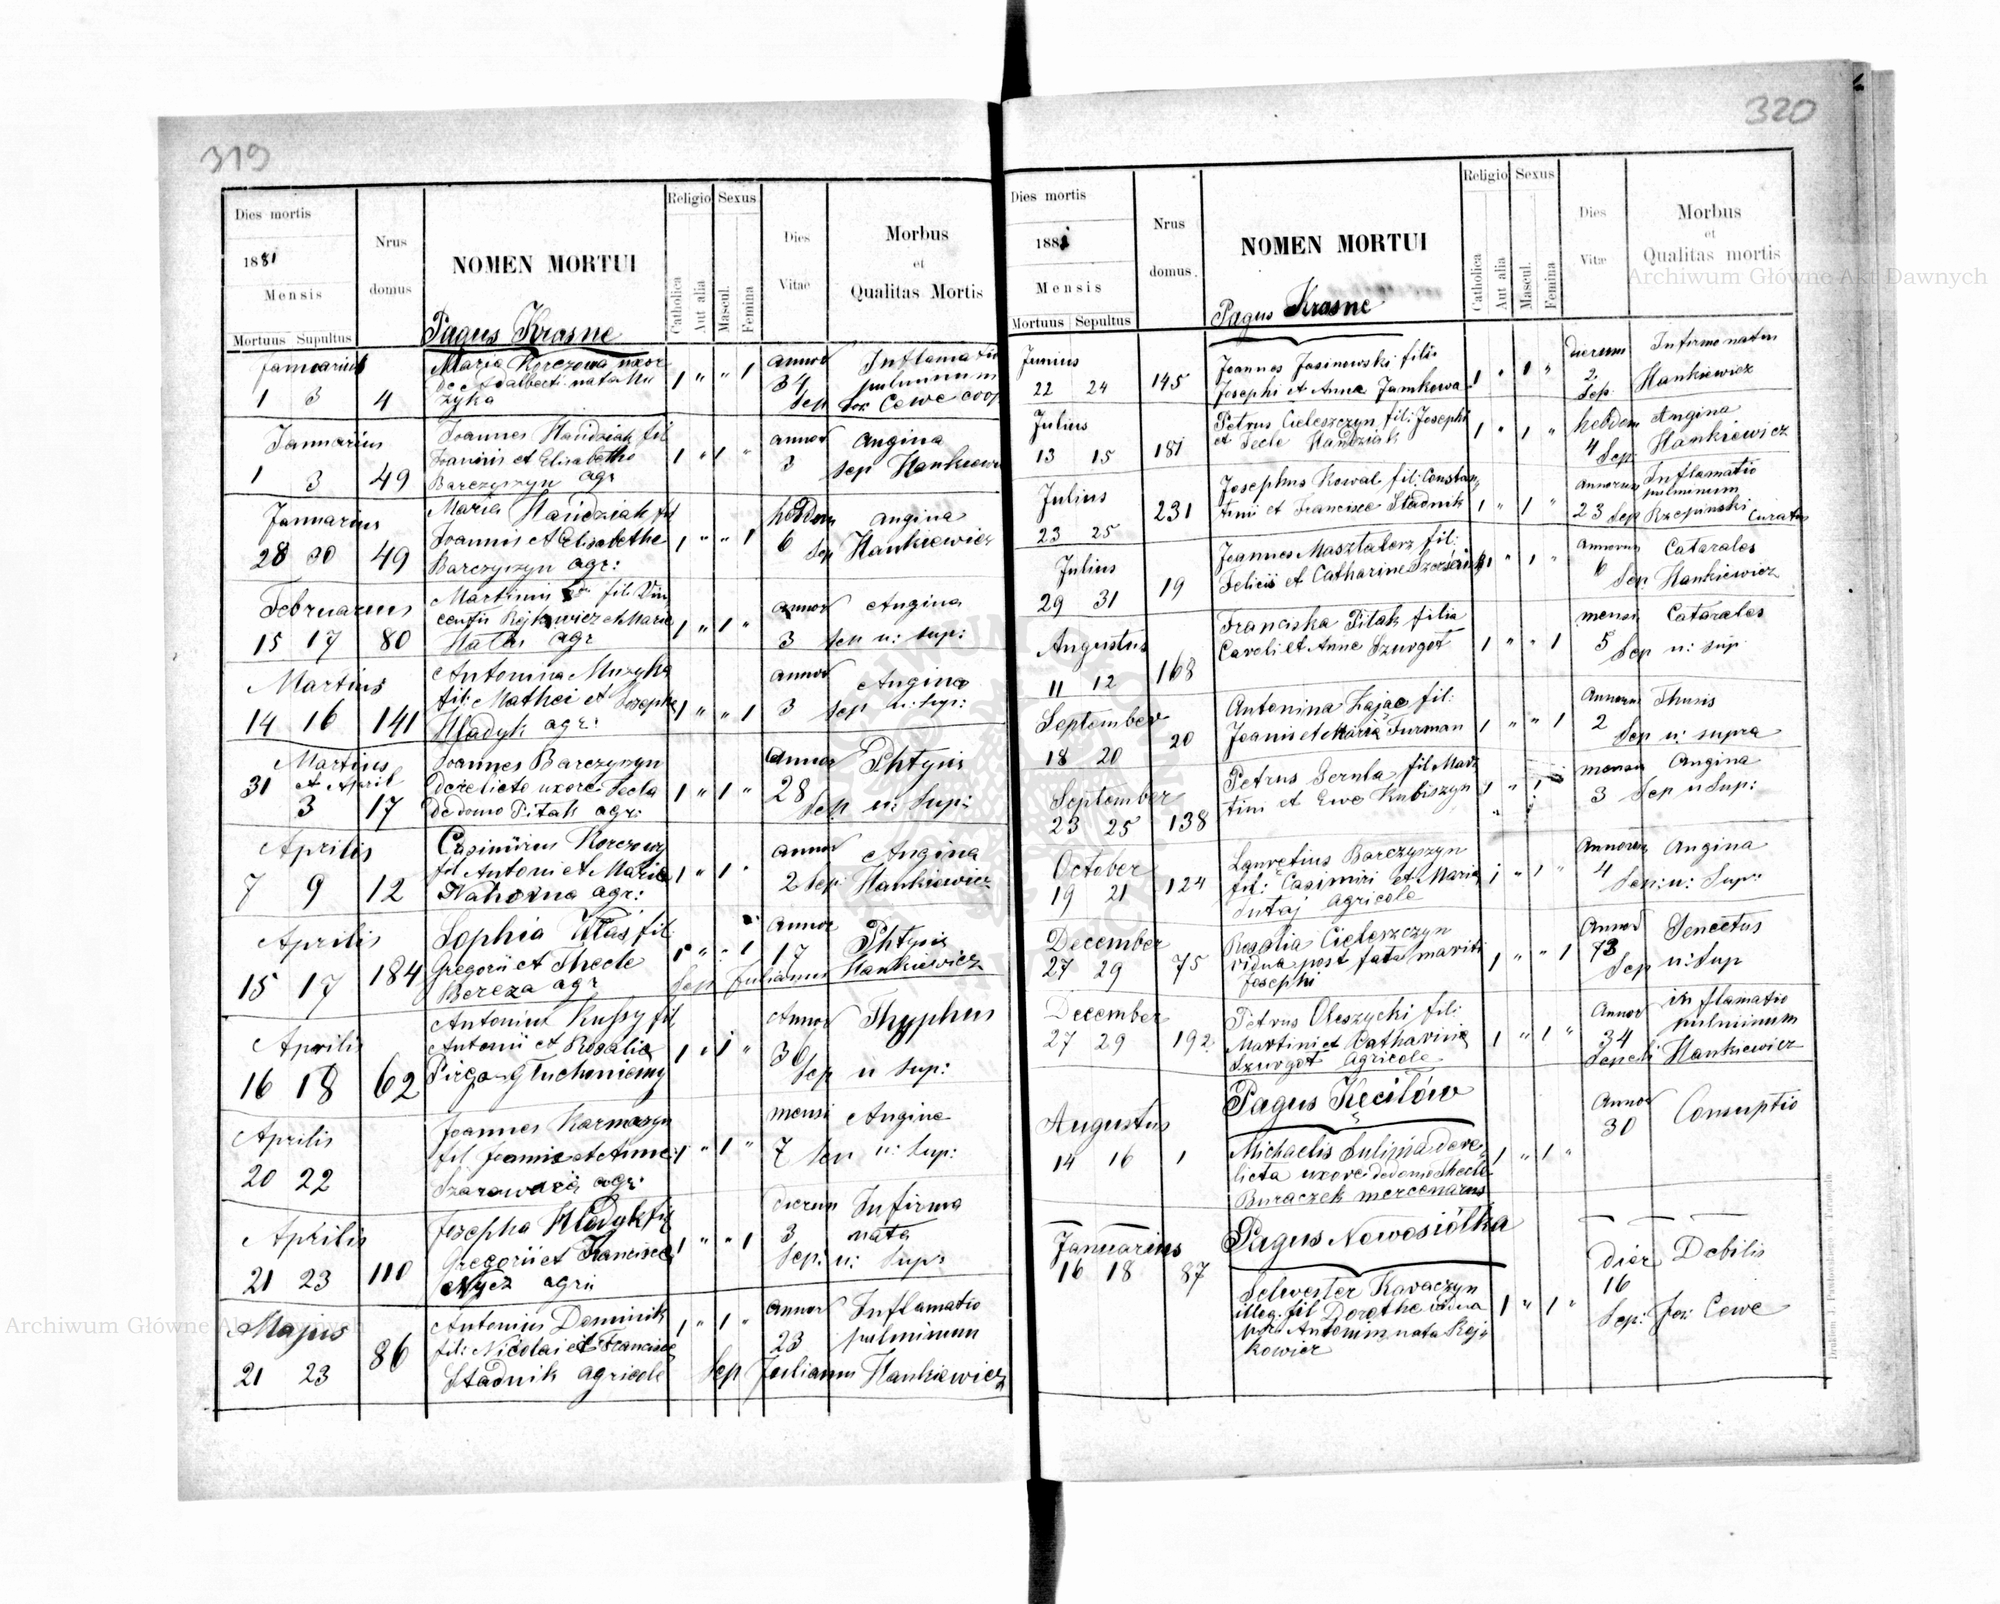 319
Dies mortis
1881
Mensis
Mortuus Sepultus
Nrus
domus
NOMEN MORTUI
Pagus Krasne
Religio
Catholica
Aut alia
Sexus
Mascul.
Femina
Dies
Vitae
Morbus
et
Qualitas Mortis
Januarius
1 3 4
Maria Korczowa uxor
Adalberti nata Mu
zyka
1 " " 1
annor
34
Sep
Inflamatio
pulmunum
for Cewe coop
Januarius
1 3 49
Joannes Handziak fil
Joannis et Elisabethe
Barczyszyn agr
1 " 1 "
annor
3
Angina
Sep Hankiewi
Januarius
28 30 49
Maria Handziak fil
Joannis et Elisabethe
Barczyszyn agr:
1 " " 1
hebdom
6
Angina
Sep Hankiewicz
Februarius
15 17 80
Martinus fil: Vin
centii Rejkowicz et Maria
agr
1 " 1 "
annor
3
Angina
Sep u: sup:
Martius
14 16 141
Antonina Muzyka
fil: Mathei et Josepha
Hladyk agr:
1 " " 1
annor
3
Angina
Sep u: sup:
Martius
31 et April
3 17
Joannes Barczyszyn
derelicto uxore Tecla
de domo Pitak agr:
1 " 1 "
annor
28
Phtysis
Sep u: Sup:
Aprilis
7 9 12
Casimirus Korczowy
fil Antoni et Maria
Nahorna agr:
1 " 1 "
annor
2
Angina
Sep: Hankiewicz
Aprilis
15 17 184
Sophia Włas fil
Gregorii et Thecle
Bereza agr
1 " " 1
annor
17
Phtysis
Sep Julianus Hankiewicz
Aprilis
16 18 62
Antonius Kussy fil
Antonii et Rosalia
1 " 1 "
Annor
30
Thyphus
Sep u sup:
Aprilis
20 22
Joannes Karmazyn
fil Joannis et Anne
agr:
1 " 1 "
mensi
7
Angina
Sep u: Sup:
Aprilis
21 23 110
Josepha Hladyk fil
Gregorii et Francisce
Nycz agri
1 " " 1
dierum
3
Infirma
nata
Sep: u: Sup:
Majus
21 23 86
Antonius Dominik
fil: Nicolai et Francisce
Stadnik agricole
1 " 1 "
annor
23
Inflamatio
pulminum
Sep Julianus Hankiewicz
320
Dies mortis
1881
Mensis
Mortuus Sepultus
Nrus
domus.
NOMEN MORTUI
Pagus Krasne
Religio
Catholica
Aut alia
Sexus
Mascul.
Femina
Dies
Vitæ
Morbus
et
Qualitas mortis
Junius
22 24 145
Joannes Jasinowski fili
Josephi et Anna Jamkowa
1 " 1 "
dierum
2
Sep.
Infirmo natus
Hankiewicz
Julius
13 15 181
Petrus Cieleszczyn fil: Josephi
et Tecle Handziak
1 " 1 "
hebdom
4
Angina
Sep: Hankiewicz
Julius
23 25 231
Josephus Kowal fil: Constan
tini et Francisce Stadnik
1 " 1 "
annorum
23
Inflamatio
pulminum
Sep Rzepinski Curatus
Julius
29 31 19
Joannes Masztalerz fil:
Felicis et Catharine
1 " 1 "
annorum
6
Catarales
Sep Hankiewicz
Augustus
11 12 168
Franciska Pitak filia
Caroli et Anne Szurgot
1 " " 1
mensi
5
Catarales
Sep u: sup
September
18 20 20
Antonina Zając fil:
Joanis et Maria Furman
1 " " 1
Annorum
2
Thusis
Sep u: supra
September
23 25 138
Petrus fil Mar
tini et Ewe Kubiszyn
1 " 1 "
mensi
3
Angina
Sep u Sup:
October
19 21 124
Lauretius Barczyszyn
fil: Casimiri et Maria
Sutaj agricole
1 " 1 "
Annorum
4
Angina
Sep: u: Sup:
December
27 29 75
Rosalia Cieleszczyn
vidua post fata mariti
Josephi
1 " " 1
Annor
73
Senectus
Sep u: Sup
December
27 29 192
Petrus Oleszycki fil:
Martini et Catharina
Szurgot Agricole
1 " 1 "
Annor
34
inflamatio
pulminum
Sepeli Hankiewicz
Pagus Kecilów
Augustus
14 16 1
Michaelis Sulima dere
licta uxore de domo Thecla
Buraczek mercenarius
1 " 1 "
Annor
30
Consuptio
Pagus Nowosiólka
Januarius
16 18 87
Selwester Karaczyn
illeg. fil Dorothe vidua
por Antonim nata Rej
kowicz
1 " 1 "
dier
16
Debilis
Sep: for Cewe
Drukiem J. Pawłowskiego w Tarnopolu
Archiwum Główne Akt Dawnych
Archiwum Główne Akt Dawnych